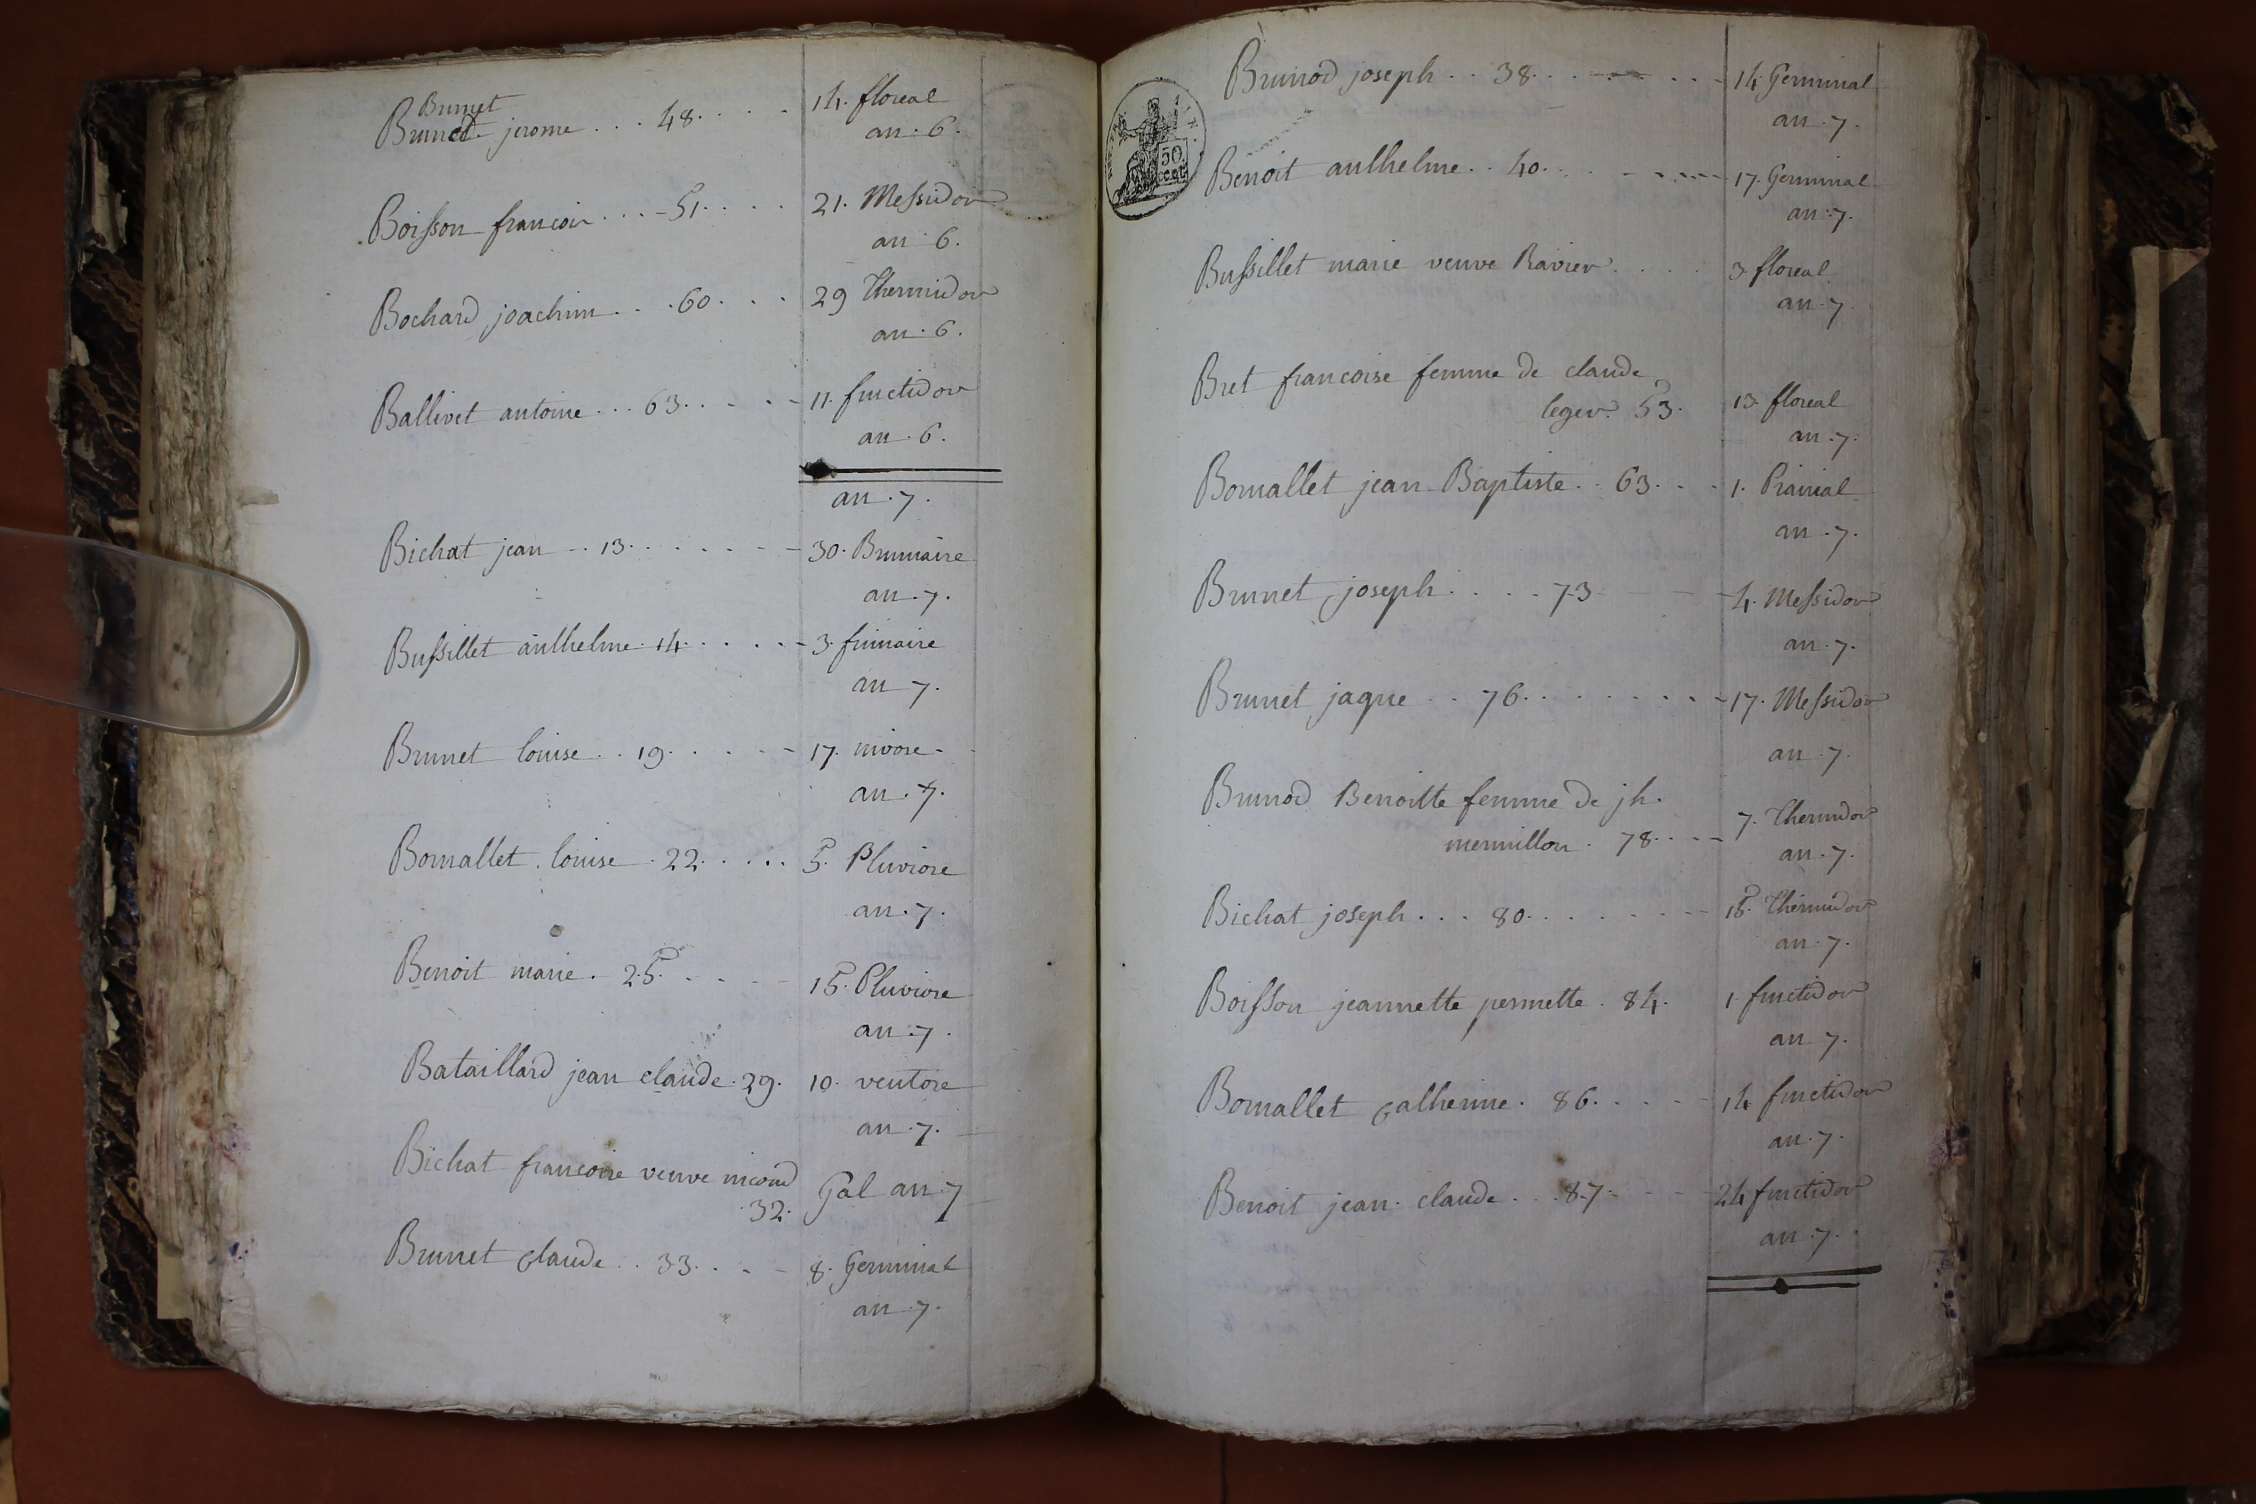 Brunet
Brunod jerome . . . 48. . . . 14. floreal
an . 6.
Boisson francois . . . 51. . . . 21. Messidor
an 6.
Bochard joachim . . . 60. . . . 29 Thermidor
an . 6.
Ballivet antoine . . . 63. . . . 11. fructidor
an . 6.
an . 7.
Bichat jean . . 13. . . . . . 30. Brumaire
an . 7.
Bussillet anthelme . 14. . . . . 3. frimaire
an 7.
Brunet louise . . 19. . . . . 17. nivose
an . 7.
Bornallet . louise . 22. . . . . 5. Pluviose
an . 7.
Benoit marie . 25. . . . 15. Pluviose
an . 7.
Bataillard jean claude . 29. 10. ventose
an . 7.
Bichat francoise veuve
. 32. Gal an . 7
Brunet Claude . . 33. . . . 8. Germinal
an . 7.
Brunod joseph . . 38. . . . . 14 Germinal
an . 7.
50
cent.
Benoit anthelme . . 40. . . . . 17. Germinal
an . 7.
Bussillet marie veuve Ravier . . . . 3 floreal
an . 7
Bret francoise femme de claude
leger. 53. 13. floreal
an . 7.
Bornallet jean Baptiste . . 63. . . 1. Prairial
an . 7.
Brunet joseph . . . . 73 4. Messidor
an . 7.
Brunet jaque . . 76. . . . . . . 17. Messidor
an . 7.
Brunod Benoitte femme de jh.
mermillon . 78. . . . 7. Thermidor
an . 7.
Bichat joseph . . . 80. . . . . . 15. Thermidor
an . 7.
Boisson jeannette pernette . 84. 1. fructidor
an 7.
Bornallet Catherine . 86. . . . . 14 fructidor
an . 7.
Benoit jean . claude . . . 87. . . . 24 fructidor
an . 7.